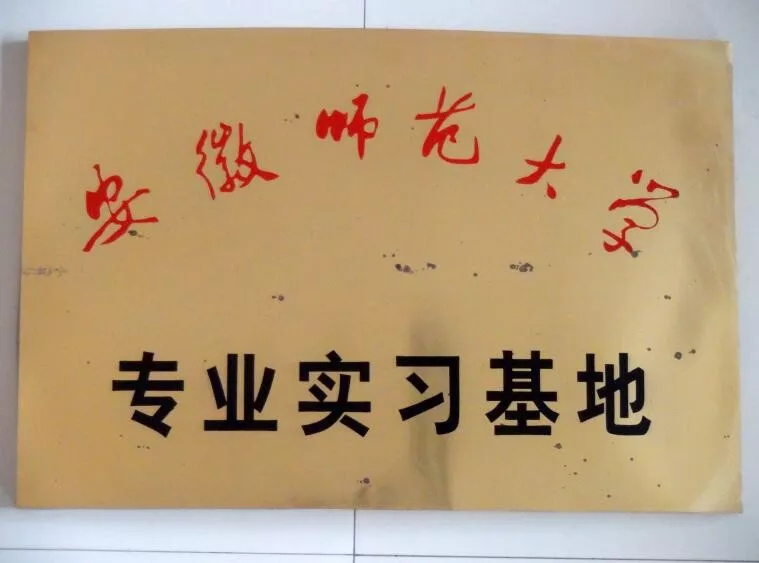 安徽师范大学
专业实习基地